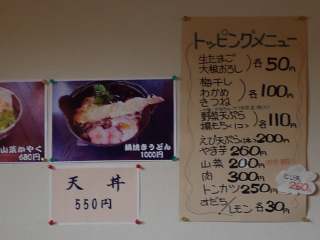 山菜かやく
680円
鍋焼きうどん
1000円
天丼
550円
トッピングメニュー
生たまご
大根おろし
各50円
梅干し
わかめ
きつね
各100円
野菜天ぷら
揚もち(2コ)
各110円
えび天ぷら(1本)200円
やま芋260円
山菜200円
肉300円
トンカツ250円
すだち/レモン各30円